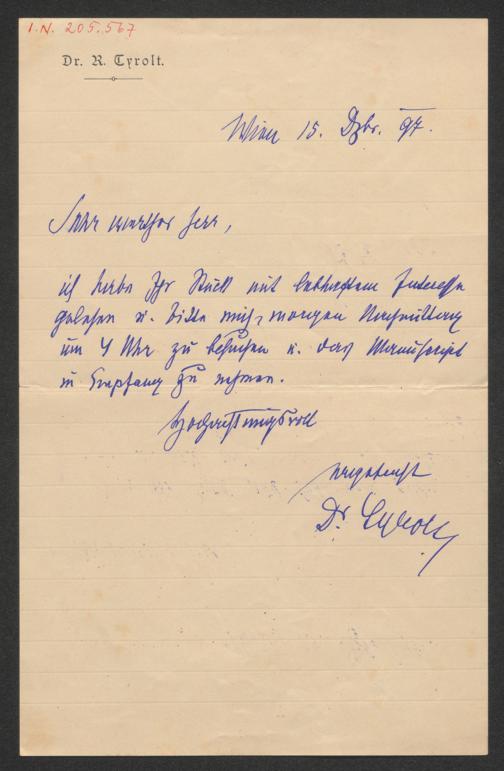 I.N. 205.567
Dr. R. Tyrolt.
Wien 15. Dzbr. 97.
Sehr werther Herr,
ich habe Ihr Stück mit lebhaftem Interesse
gelesen u. bitte mich, morgen Nachmittag
um 4 Uhr zu besuchen u. das Manuscript
in Empfang zu nehmen.
Hochachtungsvoll
ergebenst
Dr. Tyrolt